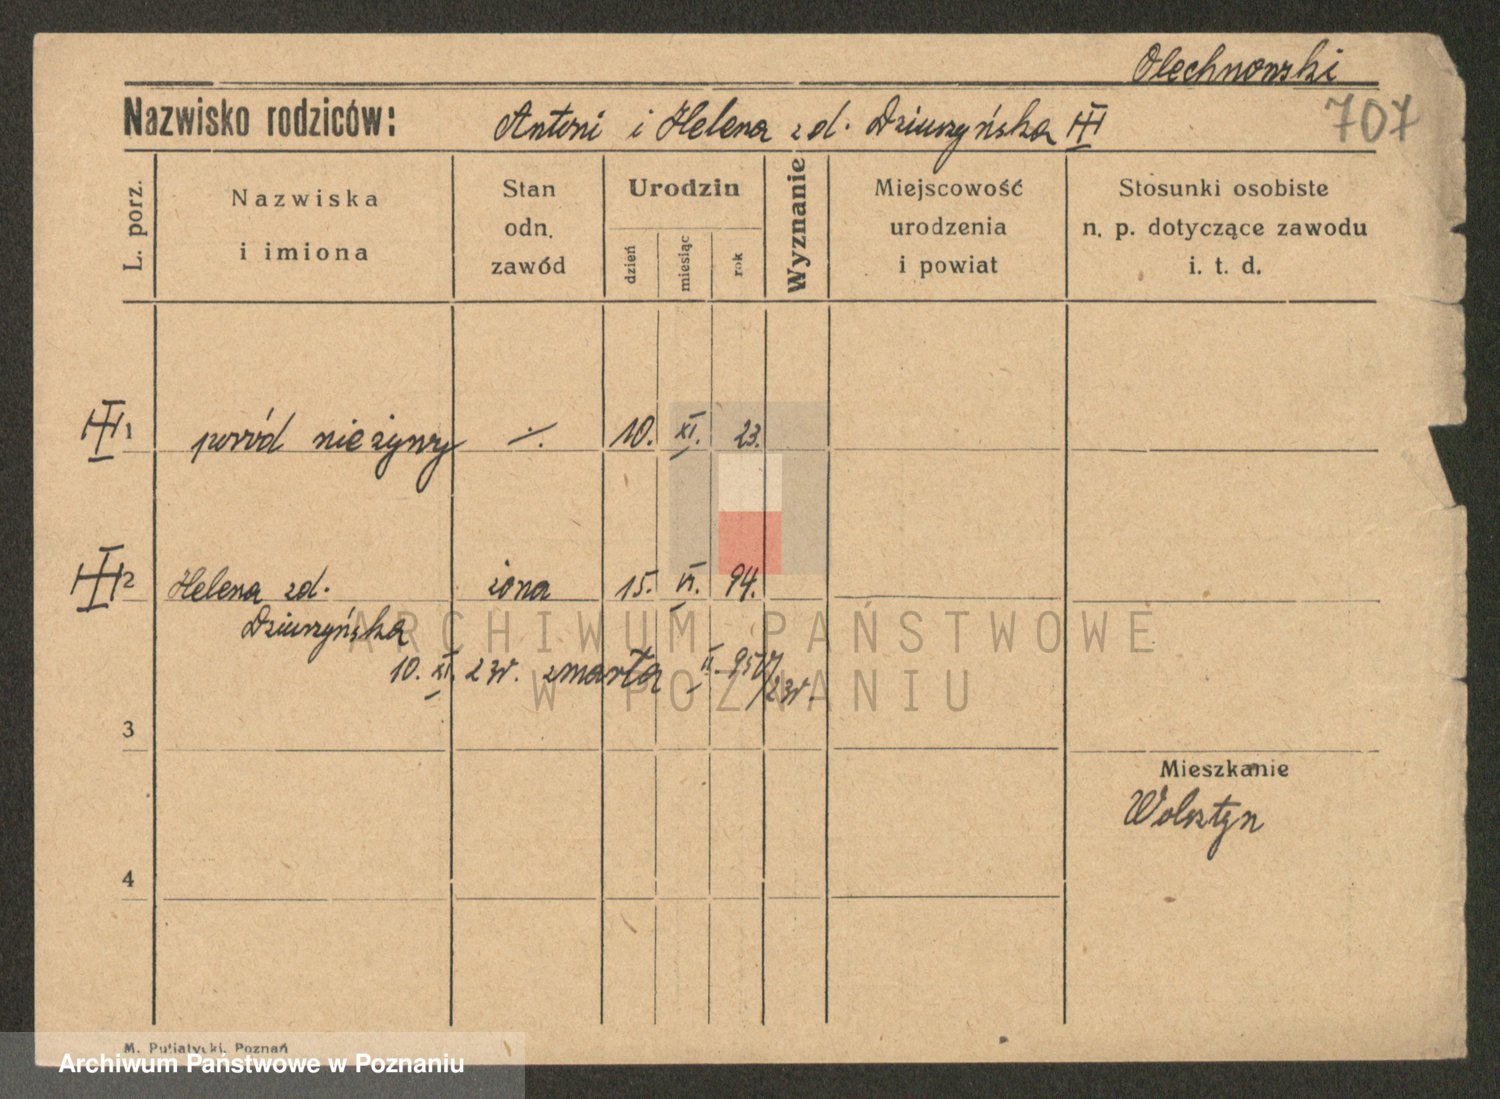 Olechnowski
Nazwisko rodziców: Antoni i Helena zd. Dziurzyńska
707
L. porz.
Nazwiska
i imiona
Stan
odn.
zawód
Urodzin
dzień
miesiąc
rok
Wyznanie
Miejscowość
urodzenia
i powiat
Stosunki osobiste
n. p. dotyczące zawodu
i. t. d.
1 poród nieżywy ·/. 10. XI. 23.
2 Helena zd. żona 15. VI. 94.
Dziurzyńska
10. XI. 23r. zmarła II. 957/23r.
3
Mieszkanie
Wolsztyn
4
ARCHIWUM PAŃSTWOWE
W POZNANIU
M. Putiatycki, Poznań
Archiwum Państwowe w Poznaniu